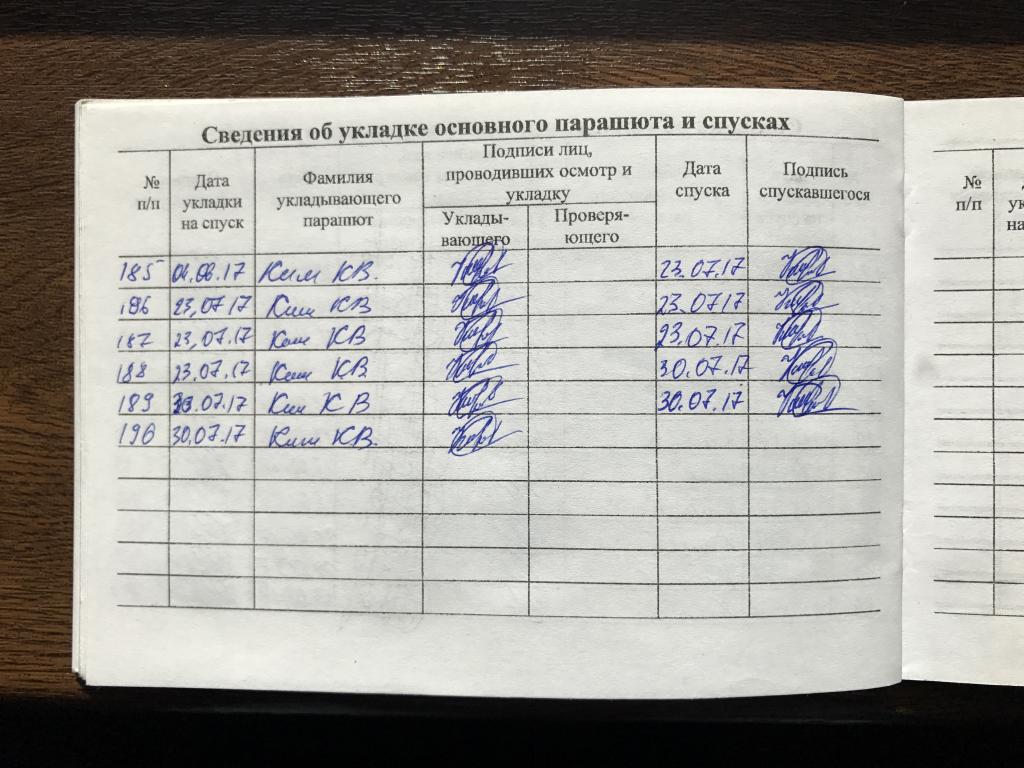 Сведения об укладке основного парашюта и спусках
№ п/п Дата укладки на спуск Фамилия укладывающего парашют Подписи лиц, проводивших осмотр и укладку Дата спуска Подпись спускавшегося
Уклады-вающего Проверя-ющего
185 04.06.17 Ким К.В. 23.07.17
186 23.07.17 Ким К В 23.07.17
187 23.07.17 Ким К В 23.07.17
188 23.07.17 Ким К В 30.07.17
189 23.07.17 Ким К В 30.07.17
190 30.07.17 Ким К В.
№ п/п